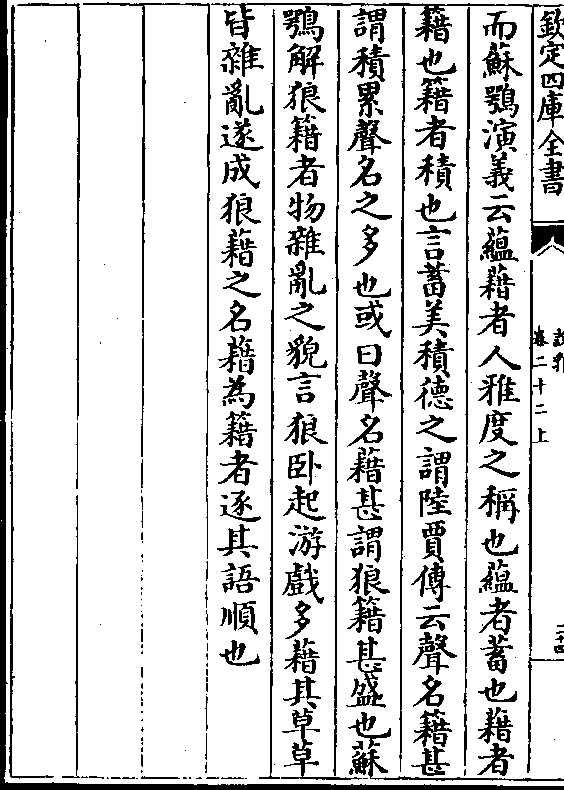 欽定四庫全書
卷二十二上
而蘇鶚演義云蘊藉者人雅度之稱也蘊者蓄也藉者
籍也籍者積也言蓄美積德之謂陸賈傳云聲名籍甚
謂積累聲名之多也或曰聲名藉甚謂狼籍甚盛也蘇
鶚解狼籍者物雜亂之貌言狼卧起游戲多藉其草草
皆雜亂遂成狼藉之名藉為籍者逐其語順也